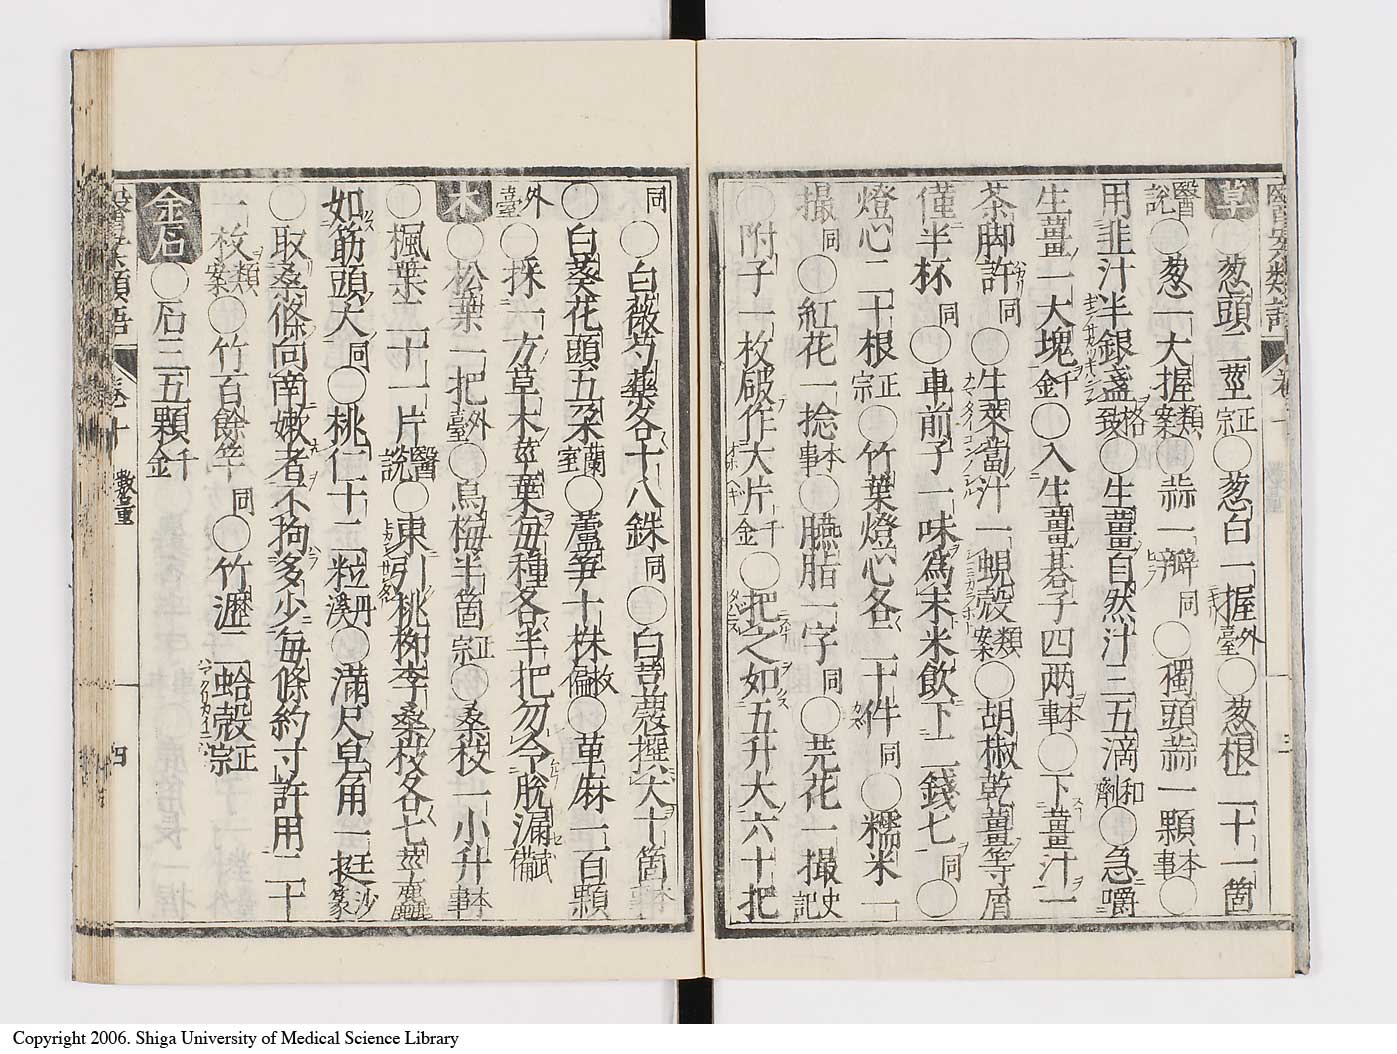 草○葱頭二莖正宗○葱白一握外臺○葱根二十一箇
醫說○葱一大握類案○蒜一瓣同○獨頭蒜一顆本事○
用韭汁半銀盞格致○生薑自然汁三五滴和劑○急嚼
生薑一大塊千金○入生薑碁子四兩本事○下薑汁一
茶脚許同○生萊菔汁一蜆殼類案○胡椒乾薑等屑
僅半杯同○車前子一味為末米飲下二錢匕同○
燈心二十根正宗○竹葉燈心各二十件同○糯米一
撮同○紅花一捻本事○臙脂一字同○芫花一撮史記
○附子一枚破作大片千金○把之如五升大六十把
同○白薇芍藥各十八銖同○白蘘撰大十箇本事
○白葵花頭五朶蘭室○蘆筍十株救偏○萆麻二百顆
外臺○採六方草木莖葉每種各半把勿令脫漏武備
木○松葉二把外臺○烏梅半箇正宗○桑枝一小升本事
○楓葉二十一片醫說○東引桃柳李桑枝各七莖
如筋頭大同○桃仁十二粒丹溪○滿尺皂用一挺沙篆
○取桑條向南嫩者不拘多少每條約寸許用二十
一枚類案○竹百餘竿同○竹瀝二蛤殼正宗
金石○石三五顆千金
卷十 數量 四